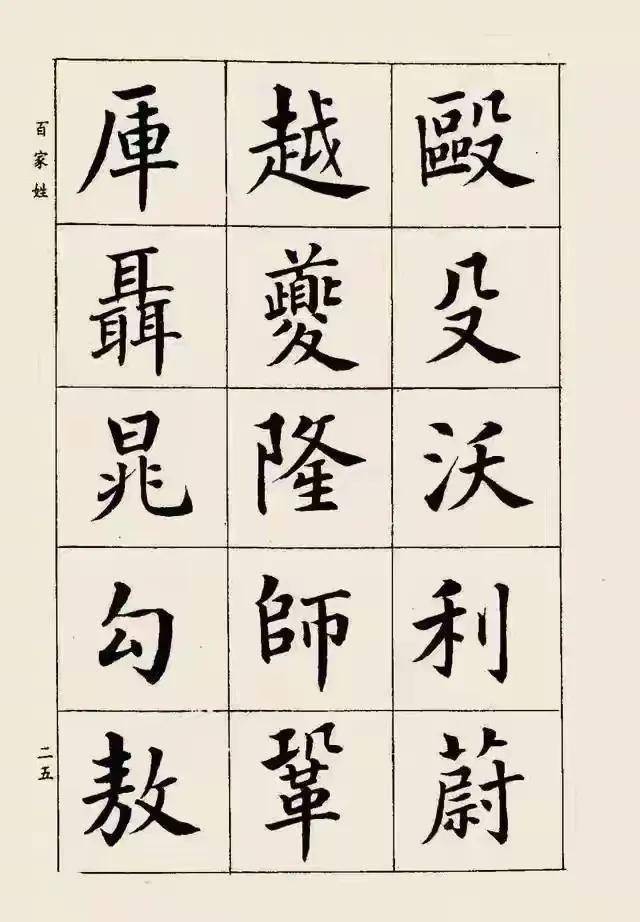 毆殳沃利蔚
越夔隆師鞏
厙聶晁勾敖
百家姓
二五